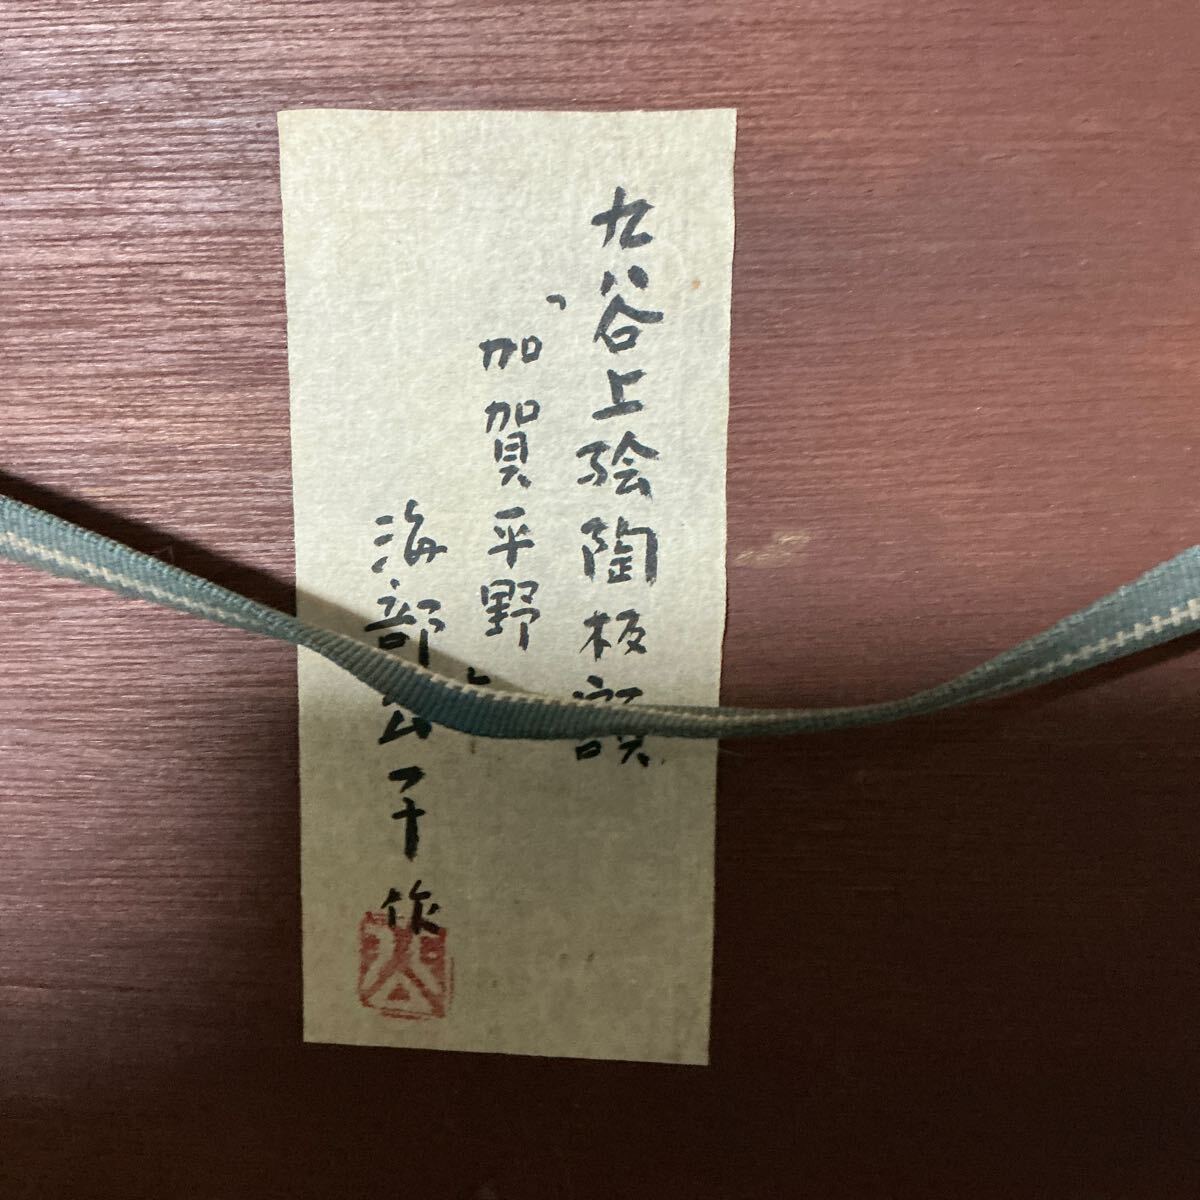 九谷上絵陶板額
「加賀平野」
海部公子作
公